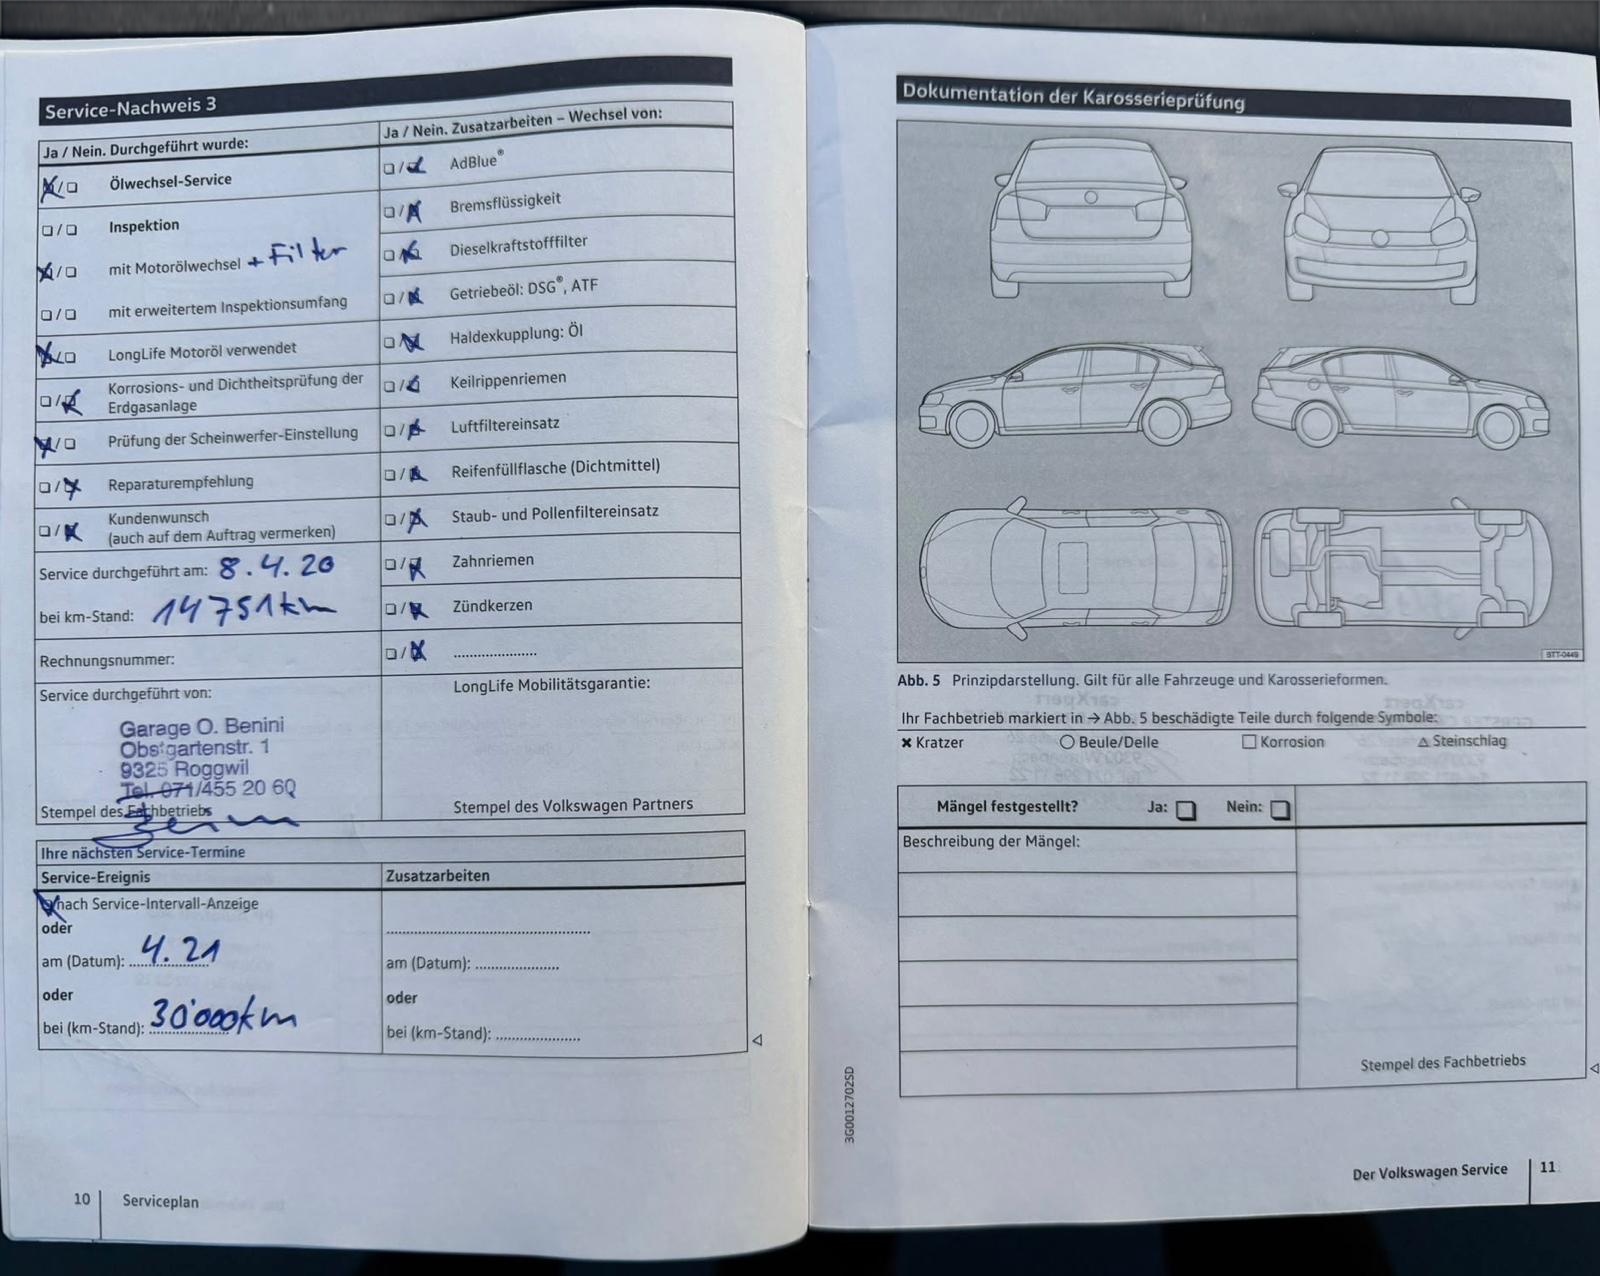 Service-Nachweis 3
Ja / Nein. Durchgeführt wurde:
☒/☐ Ölwechsel-Service
☐/☐ Inspektion
☒/☐ mit Motorölwechsel + Filter
☐/☐ mit erweitertem Inspektionsumfang
☒/☐ LongLife Motoröl verwendet
☐/☒ Korrosions- und Dichtheitsprüfung der
Erdgasanlage
☒/☐ Prüfung der Scheinwerfer-Einstellung
☐/☒ Reparaturempfehlung
☐/☒ Kundenwunsch
(auch auf dem Auftrag vermerken)
Service durchgeführt am: 8.4.20
bei km-Stand: 14751km
Rechnungsnummer:
Service durchgeführt von:
Garage O. Benini
Obstgartenstr. 1
9325 Roggwil
Tel. 071/455 20 60
Stempel des Fachbetriebs
Ja / Nein. Zusatzarbeiten – Wechsel von:
☐/☒ AdBlue®
☐/☒ Bremsflüssigkeit
☐/☒ Dieselkraftstofffilter
☐/☒ Getriebeöl: DSG®, ATF
☐/☒ Haldexkupplung: Öl
☐/☒ Keilrippenriemen
☐/☒ Luftfiltereinsatz
☐/☒ Reifenfüllflasche (Dichtmittel)
☐/☒ Staub- und Pollenfiltereinsatz
☐/☒ Zahnriemen
☐/☒ Zündkerzen
☐/☒ .....................
LongLife Mobilitätsgarantie:
Stempel des Volkswagen Partners
Ihre nächsten Service-Termine
Service-Ereignis
☒ nach Service-Intervall-Anzeige
oder
am (Datum): 4.21
oder
bei (km-Stand): 30'000km
Zusatzarbeiten
..................................................
am (Datum): .....................
oder
bei (km-Stand): .....................
10 Serviceplan
Dokumentation der Karosserieprüfung
BTT-0449
Abb. 5 Prinzipdarstellung. Gilt für alle Fahrzeuge und Karosserieformen.
Ihr Fachbetrieb markiert in → Abb. 5 beschädigte Teile durch folgende Symbole:
✖ Kratzer ○ Beule/Delle □ Korrosion △ Steinschlag
Mängel festgestellt? Ja: ☐ Nein: ☐
Beschreibung der Mängel:
Stempel des Fachbetriebs
3G0012702SD
Der Volkswagen Service 11